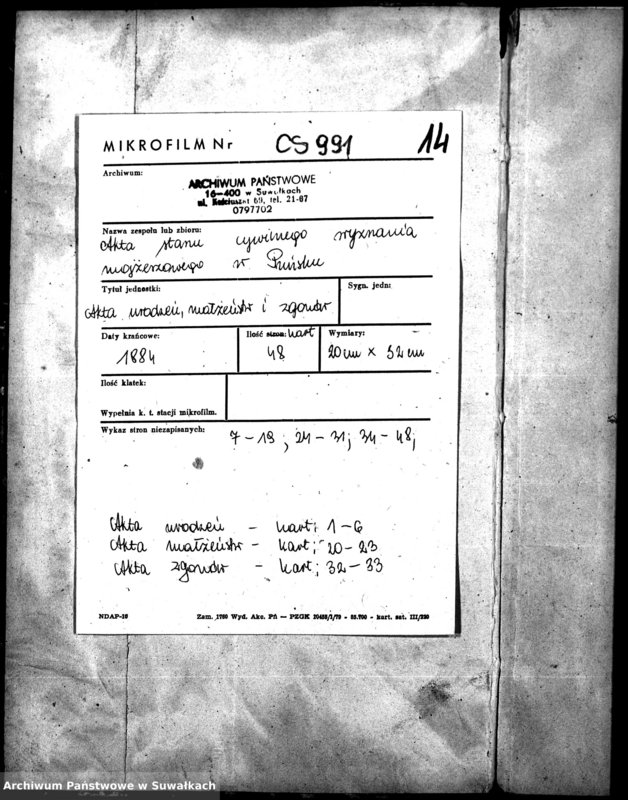 MIKROFILM Nr CS 991 14
Archiwum:
ARCHIWUM PAŃSTWOWE
16-400 w Suwałkach
ul. Kościuszki 69, tel. 21-67
0797702
Nazwa zespołu lub zbioru:
Akta stanu cywilnego wyznania
mojżeszowego w Puńsku
Tytuł jednostki: Sygn. jedn:
Akta urodzeń, małżeństw i zgonów
Daty krańcowe: Ilość stron: kart Wymiary:
1884 48 20cm x 32cm
Ilość klatek:
Wypełnia k. t. stacji mikrofilm.
Wykaz stron niezapisanych: 7-19; 24-31; 34-48;
Akta urodzeń - kart: 1-6
Akta małżeństw - kart; 20-23
Akta zgonów - kart; 32-33
NDAP-16 Zam. 1760 Wyd. Akc. Pń — PZGK
Archiwum Państwowe w Suwałkach